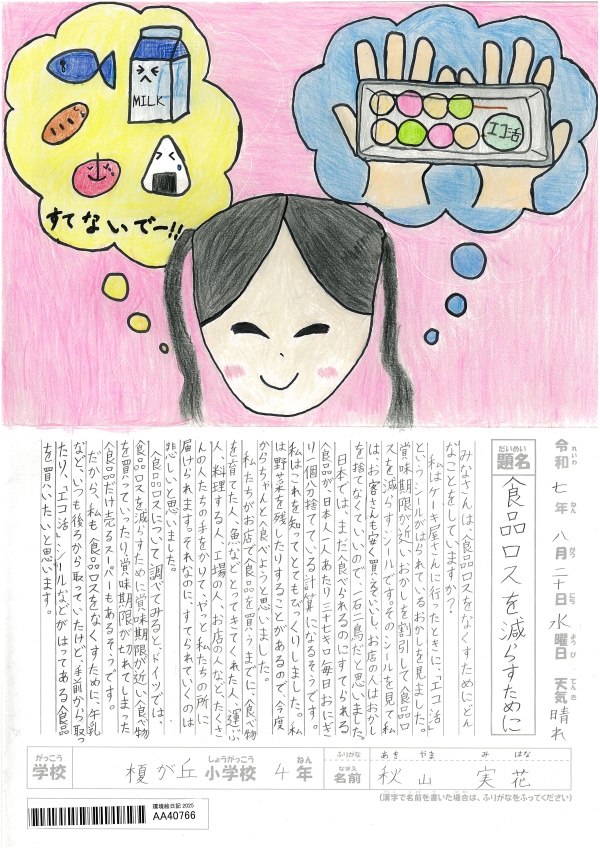 MILK
すてないでー!!
エコ活
令和 七年 八月 二十日 水曜日 天気 晴れ
れいわ ねん がつ にち ようび てんき
だいめい
題名 食品ロスを減らすために
みなさんは、食品ロスをなくすためにどん
なことをしていますか?
私はケーキ屋さんに行ったときに、「エコ活」
というシールがはられているおかしを見ました。
賞味期限が近いおかしを割引して食品ロ
スを減らすシールです。そのシールを見て私
は、お客さんも安く買えるし、お店の人はおかし
を捨てなくていいので、一石二鳥だと思いました。
日本では、まだ食べられるのにすてられる
食品が日本人一人あたり三十七キロ毎日おにぎ
り一個分捨てている計算になるそうです。
私はこれを知ってとてもびっくりしました。私
は野菜を残したりすることがあるので、今度
からちゃんと食べようと思いました。
私たちがお店で食品を買うまでに、食べ物
を育てた人、魚などとってきてくれた人、運ぶ
人、料理する人、工場の人、お店の人など、たくさ
んの人たちの手をかけて、やっと私たちの所に
届けられます。それなのに、すてられていくのは
悲しいと思いました。
食品ロスについて調べてみると、ドイツでは、
食品ロスを減らすために賞味期限が近い食べ物
を買っていったり、賞味期限が切れてしまった
食品だけ売るスーパーもあるそうです。
だから、私も食品ロスをなくすために、牛乳
など、いつも後ろから取っていたけど、手前から取っ
たり、「エコ活」シールなどがはってある食品
を買いたいと思います。
がっこう しょうがっこう ねん ふりがな あき やま み はな
学校 榎が丘 小学校 4年 なまえ 名前 秋山 実花
(漢字で名前を書いた場合は、ふりがなをふってください)
環境絵日記 2025
AA40766